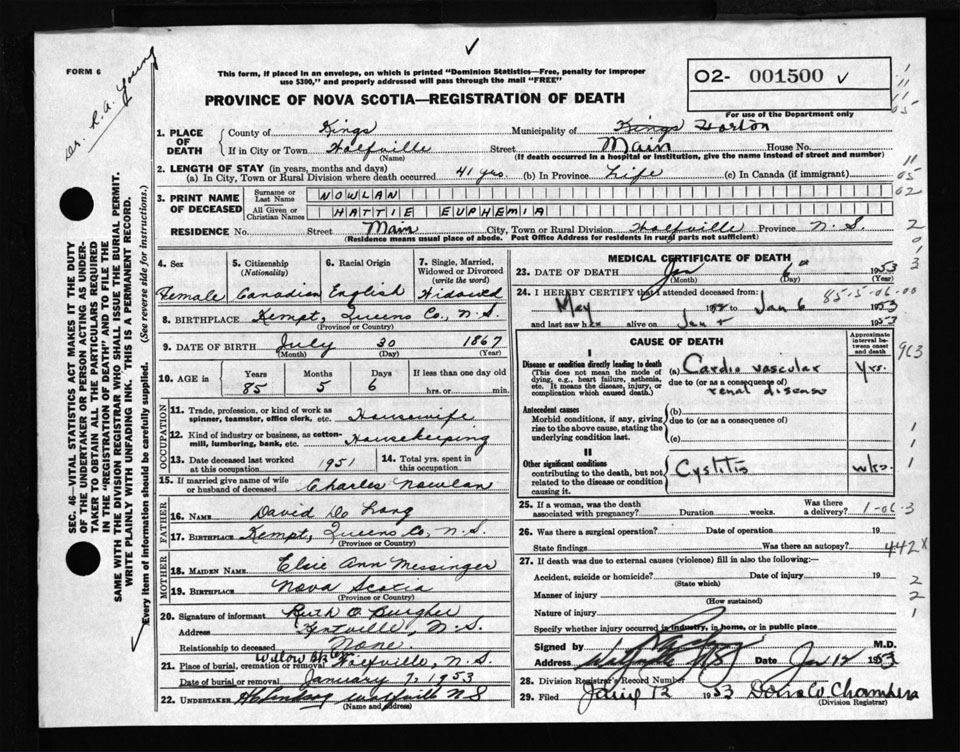 FORM 6
Dr. R. A. Young
This form, if placed in an envelope, on which is printed "Dominion Statistics—Free, penalty for improper
use $300," and properly addressed will pass through the mail "FREE"
PROVINCE OF NOVA SCOTIA—REGISTRATION OF DEATH
O2- 001500
For use of the Department only
SEC. 46—VITAL STATISTICS ACT MAKES IT THE DUTY
OF THE UNDERTAKER OR PERSON ACTING AS UNDER-
TAKER TO OBTAIN ALL THE PARTICULARS REQUIRED
IN THE "REGISTRATION OF DEATH" AND TO FILE THE
SAME WITH THE DIVISION REGISTRAR WHO SHALL ISSUE THE BURIAL PERMIT.
WRITE PLAINLY WITH UNFADING INK. THIS IS A PERMANENT RECORD.
Every item of information should be carefully supplied. (See reverse side for instructions.)
1. PLACE OF DEATH County of Kings Municipality of Kings Horton
If in City or Town Wolfville Street Main House No.
(Name) (If death occurred in a hospital or institution, give the name instead of street and number)
2. LENGTH OF STAY (in years, months and days)
(a) In City, Town or Rural Division where death occurred 41 yrs. (b) In Province Life (c) In Canada (if immigrant)
3. PRINT NAME OF DECEASED Surname or Last Name NOWLAN
All Given or Christian Names HATTIE EUPHEMIA
RESIDENCE No. Street Main City, Town or Rural Division Wolfville Province N.S.
(Residence means usual place of abode. Post Office Address for residents in rural parts not sufficient)
4. Sex 5. Citizenship (Nationality) 6. Racial Origin 7. Single, Married, Widowed or Divorced (write the word)
Female Canadian English Widowed
8. BIRTHPLACE Kempt, Queens Co., N.S.
(Province or Country)
9. DATE OF BIRTH July 30 1867
(Month) (Day) (Year)
10. AGE in Years Months Days If less than one day old
85 5 6 hrs. or min.
OCCUPATION
11. Trade, profession, or kind of work as
spinner, teamster, office clerk, etc. Housewife
12. Kind of industry or business, as cotton-
mill, lumbering, bank, etc. Housekeeping
13. Date deceased last worked at this occupation 1951 14. Total yrs. spent in this occupation
15. If married give name of wife
or husband of deceased Charles Nowlan
FATHER
16. NAME David De Long
17. BIRTHPLACE Kempt, Queens Co, N.S.
(Province or Country)
MOTHER
18. MAIDEN NAME Elsie Ann Meisinger
19. BIRTHPLACE Nova Scotia
(Province or Country)
20. Signature of informant Ruth O.
Address Kentville, N.S.
Relationship to deceased None.
21. Place of burial, cremation or removal Willow Bank Wolfville, N.S.
Date of burial or removal January 7, 1953
22. UNDERTAKER Wolfville NS
(Name and address)
MEDICAL CERTIFICATE OF DEATH
23. DATE OF DEATH Jan 6th 1953
(Month) (Day) (Year)
24. I HEREBY CERTIFY that I attended deceased from:
May 1952 to Jan 6 1953
85-5-06-00
and last saw her alive on Jan 1953
CAUSE OF DEATH Approximate interval between onset and death
I
Disease or condition directly leading to death
(This does not mean the mode of
dying, e.g., heart failure, asthenia,
etc. It means the disease, injury, or
complication which caused death.)
(a) Cardio vascular yrs.
due to (or as a consequence of)
renal disease
Antecedent causes
Morbid conditions, if any, giving
rise to the above cause, stating the
underlying condition last.
(b)
due to (or as a consequence of)
(c)
II
Other significant conditions
contributing to the death, but not
related to the disease or condition
causing it.
Cystitis wks.
25. If a woman, was the death
associated with pregnancy? Duration weeks. Was there a delivery?
26. Was there a surgical operation? Date of operation 19
State findings Was there an autopsy?
27. If death was due to external causes (violence) fill in also the following:—
Accident, suicide or homicide? Date of injury 19
(State which)
Manner of injury
(How sustained)
Nature of injury
Specify whether injury occurred in industry, in home, or in public place
Signed by M.D.
Address Wolfville NS Date Jan 12 1953
28. Division Registrar's Record Number
29. Filed Jan'y 12 1953 Dora W Chambers
(Division Registrar)
11
05
02
2
0
3
963
1
1
1
1-06-3
442X
2
2
1